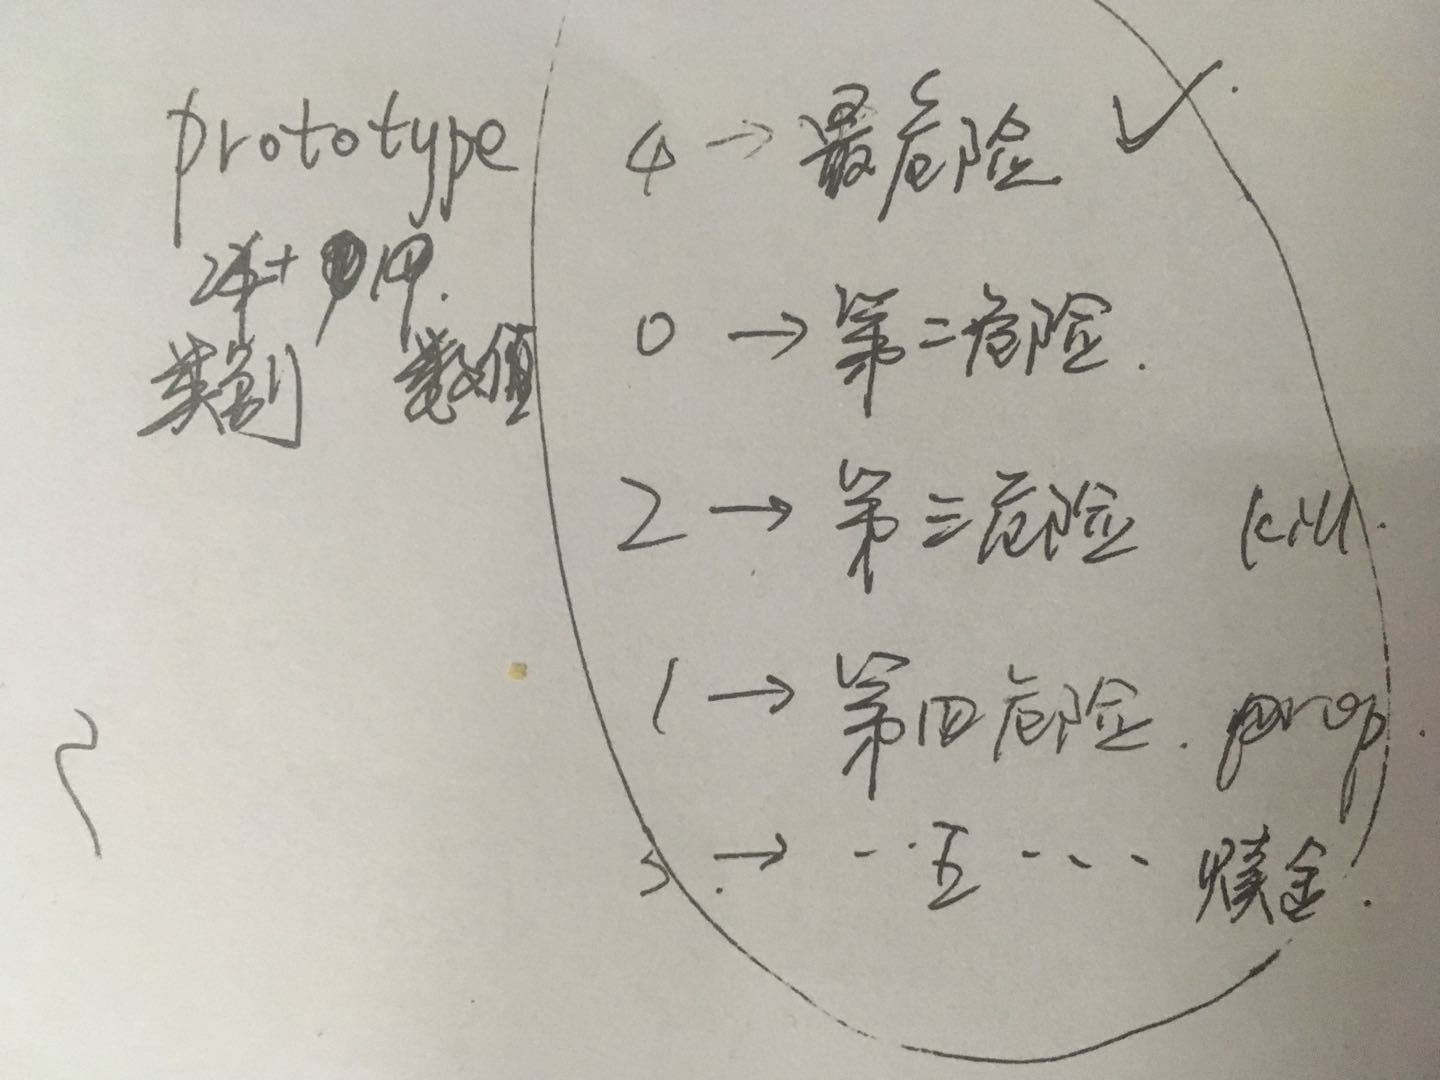 prototype
类别 数值
4 → 最危险 ✓.
0 → 第二危险.
2 → 第三危险 kill.
1 → 第四危险. prop.
3. → -··五--- 赎金.